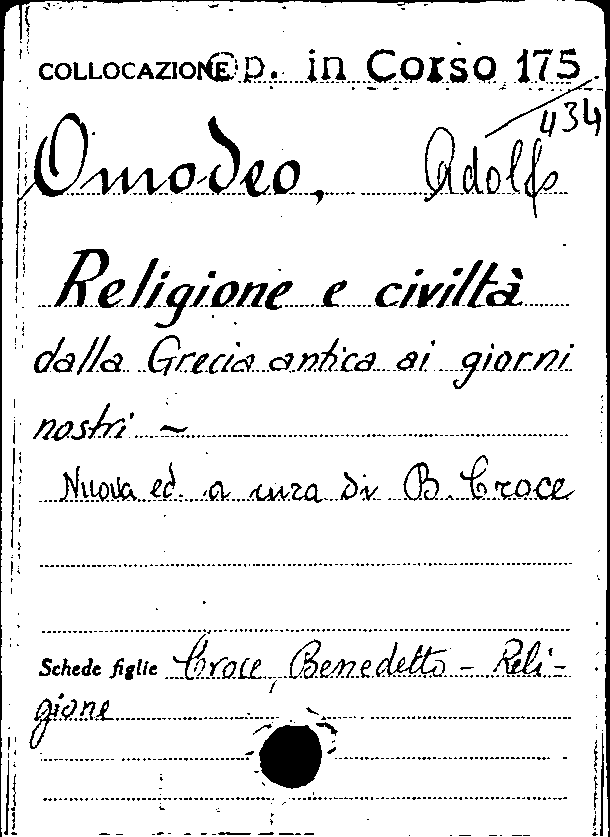 COLLOCAZIONE Op. in Corso 175
434
Omodeo, Adolfo
Religione e civiltà
dalla Grecia antica ai giorni
nostri –
Nuova ed. a cura di B. Croce
Schede figlie Croce, Benedetto – Reli-
gione